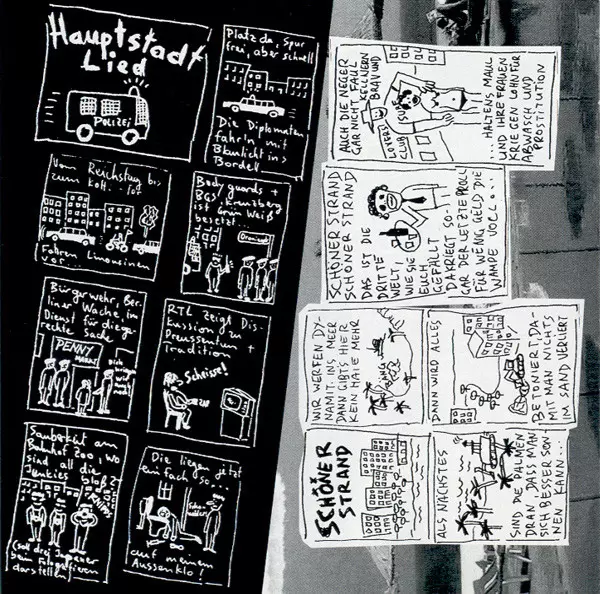 Hauptstadt
Lied
POLIZEI
Platz da, Spur
frei, aber schnell
Die Diplomaten
fahr'n mit
Blaulicht ins
Bordell
Vom Reichstag bis
zum Kott.. tot
Fahren Limousinen
vor...
Bodyguards +
BGS, Kreuzberg
ist Grün Weiß
besetzt...
Bürgerwehr, Ber-
liner Wache, im
Dienst für die ge-
rechte Sache
PENNY
MARKT
RTL zeigt Dis-
kussion zu
Preussentum +
Tradition
Scheisse!
ZAP
Sauberkeit am
Bahnhof Zoo, wo
sind all die
Junkies bloß?
KNIPS
(soll drei Japaner
beim Fotografieren
darstellen)
Die liegen jetzt
einfach so...
auf meinem
Aussenklo!
SCHÖNER
STRAND
ALS NÄCHSTES
SIND DIE PALMEN
DRAN DASS MAN
SICH BESSER SON
NEN KANN...
WIR WERFEN DY-
NAMIT INS MEER
DANN GIBTS HIER
KEIN HAIE MEHR
DANN WIRD ALLES
BETONIERT, DA-
MIT MAN NICHTS
IM SAND VERLIERT
SCHÖNER STRAND
SCHÖNER STRAND
DAS IST DIE
DRITTE
WELT,
WIE SIE
EUCH
GEFÄLLT
DA KRIEGT SO-
GAR DER LETZTE PROLL
FÜR WENIG GELD DIE
WAMPE VOLL...
AUCH DIE NEGER
GAR NICHT FAUL
KELLNERN
BRAV UND
LOVERS
CLUB
...HALTENS MAUL
UND IHRE FRAUEN
KRIEGEN LOHN FÜR
ABWASCH UND
PROSTITUTION